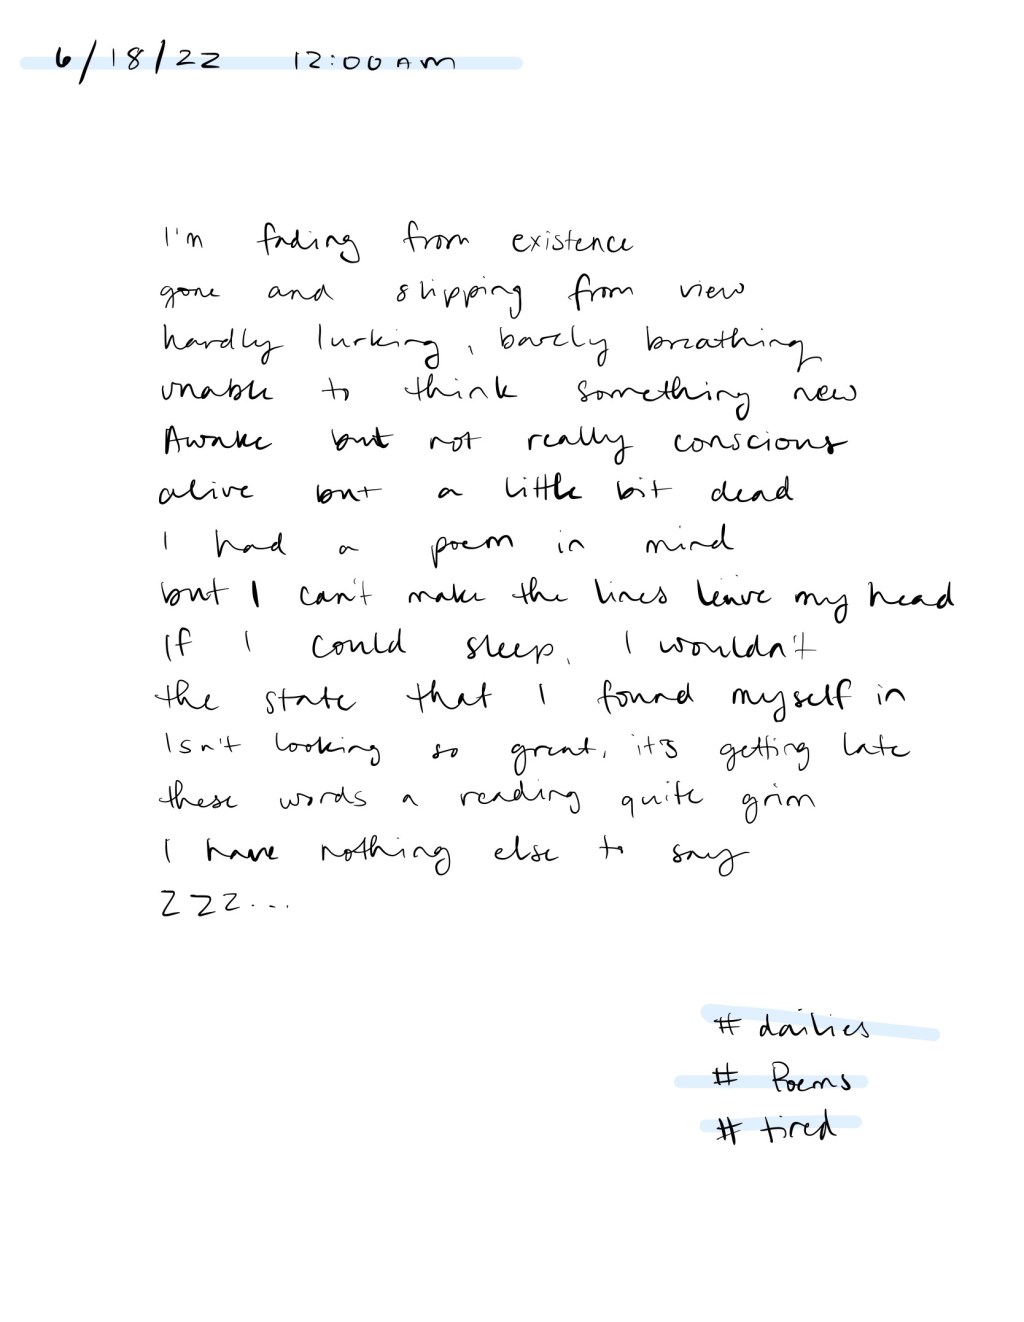 6/18/22 12:00 AM
I'm fading from existence
gone and slipping from view
hardly lurking, barely breathing
unable to think something new
Awake but not really conscious
alive but a little bit dead
I had a poem in mind
but I can't make the lines leave my head
If I could sleep, I wouldn't
the state that I found myself in
Isn't looking so great, it's getting late
these words a reading quite grim
I have nothing else to say
ZZZ...
# dailies
# Poems
# tired